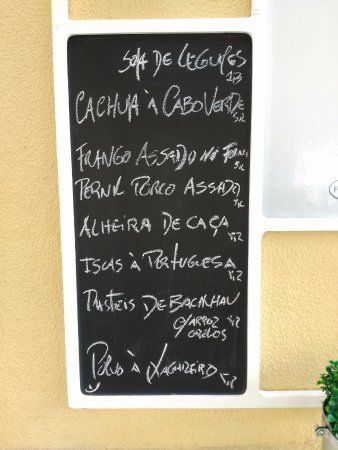 SOPA DE LEGUMES
CACHUPA À CABO VERDE
FRANGO ASSADO NO FORNO
PERNIL PORCO ASSADO
ALHEIRA DE CAÇA
ISCAS À PORTUGUESA
PASTEIS DE BACALHAU
C/ARROZ
GRELOS
POLVO À LAGAREIRO